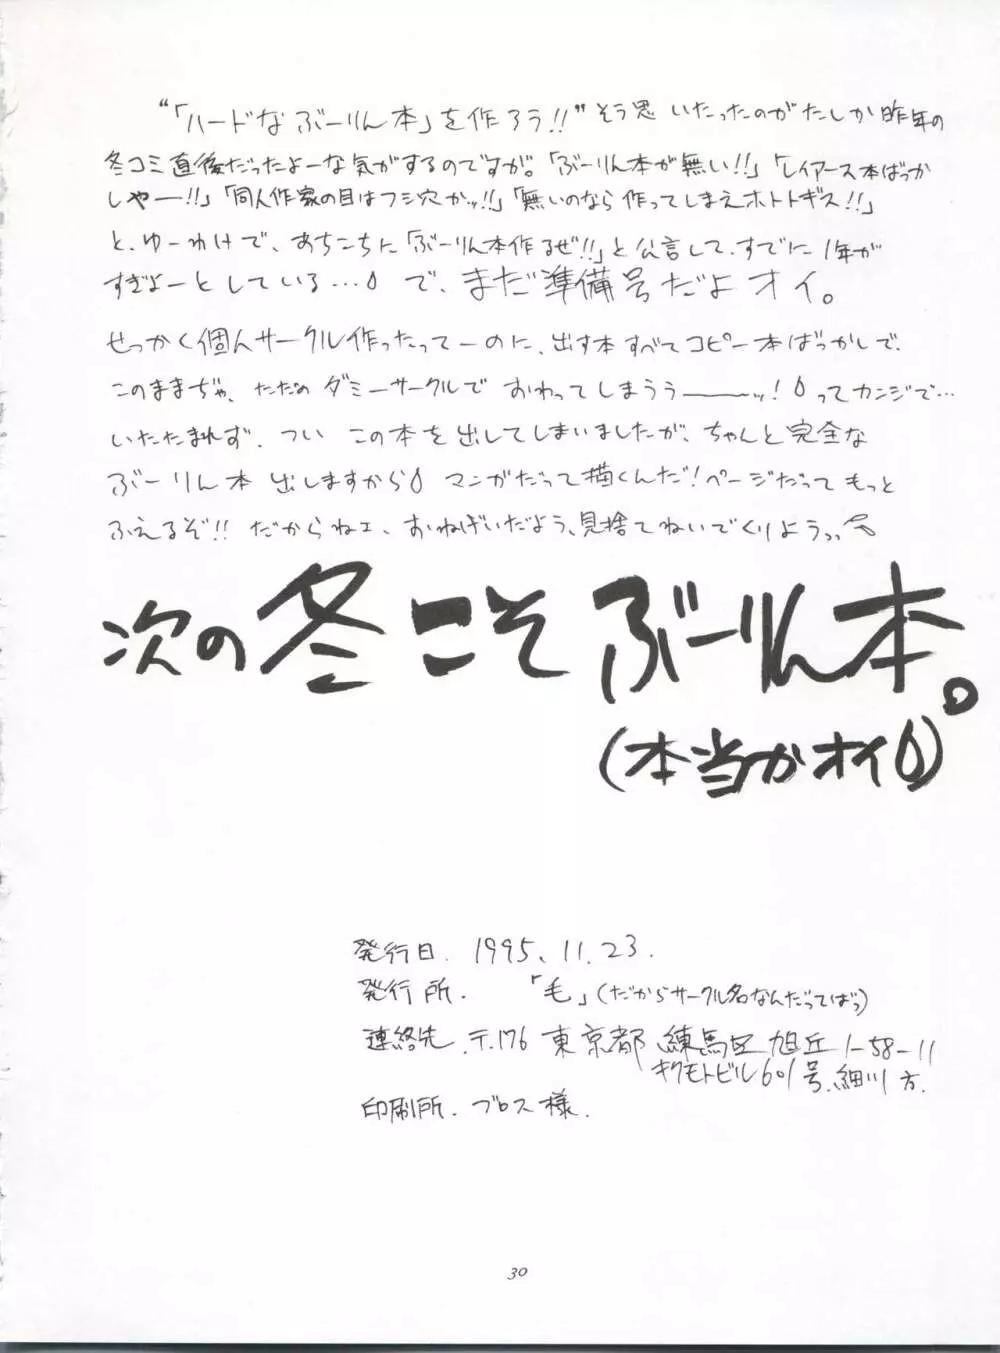 “「ハードなぶーりん本」を作ろう!!”そう思いたったのがたしか昨年の
冬コミ直後だったよーな気がするのですが。「ぶーりん本が無い!!」「レイアース本ばっか
しやー!!」「同人作家の目はフシ穴かッ!!」「無いのなら作ってしまえホトトギス!!」
と、ゆーわけで、あちこちに「ぶーりん本作るぜ!!」と公言して、すでに1年が
すぎよーとしている…で、まだ準備号だよオイ。
せっかく個人サークル作ったってーのに、出す本すべてコピー本ばっかしで、
このままぢゃ、ただのダミーサークルでおわってしまううーッ!ってカンジで…
いたたまれず、ついこの本を出してしまいましたが、ちゃんと完全な
ぶーりん本出しますから マンガだって描くんだ!ページだってもっと
ふえるぞ!!だからねェ、おねげいだよう、見捨てねいでくりようっ、
次の冬こそぶーりん本。
(本当かオイ)
発行日. 1995、11.23.
発行所. 「毛」(だからサークル名なんだってばっ)
連絡先.〒176 東京都練馬区旭丘1-58-11
キクモトビル601号.細川方.
印刷所. ブロス様.
30